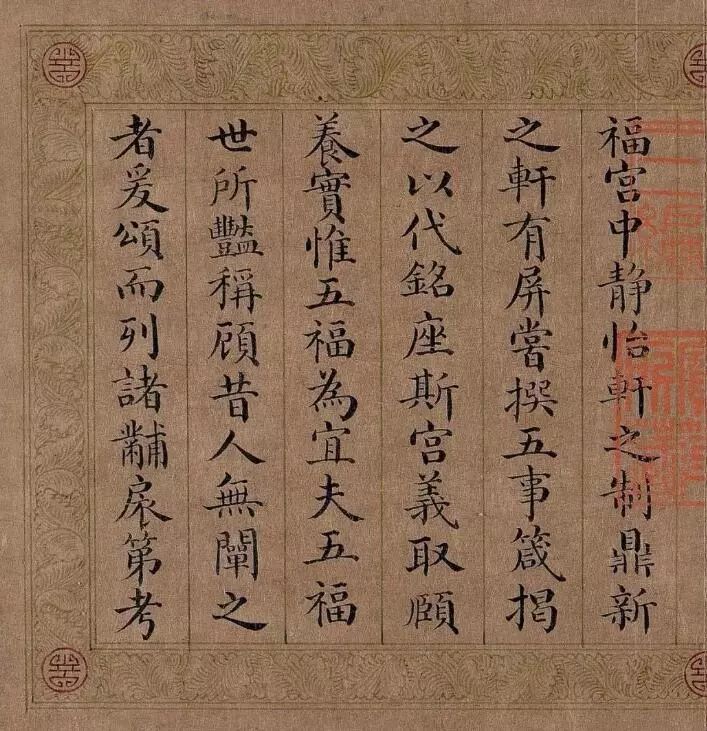 福宫中静怡軒之制鼎新
之軒有屏嘗撰五事箴揭
之以代銘座斯宫義取頤
養實惟五福為宜夫五福
世所豔稱顧昔人無闡之
者爰頌而列諸黼扆第考